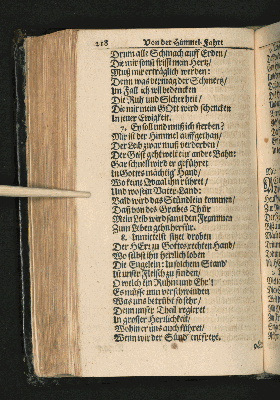 218 Von der Himmel-Fahrt
Drum alle Schmach auff Erden/
Die mir sonst frist mein Hertz/
Muß mir erträglich werden:
Denn was vermag der Schmertz/
Im Fall ich wil bedencken
Die Ruh und Sicherheit/
Die mir mein GOtt wird schencken
In jener Ewigkeit.
7. Ey soll und muß ich sterben?
Mir ist der Himmel auffgethan/
Der Leib zwar muß verderben/
Der Geist geht weit ein ander Bahn:
Gar schnell wird er geführet
In Gottes mächtig Hand/
Wo keine Quaal ihn rühret/
Und wo sein Vater-Land:
Bald wird das Stündlein kommen/
Daß von des Grabes Thür
Mein Leib wird samt den Frommen
Zum Leben gehn herfür.
8. Inmittelst sitzet droben
Der HErr zu Gottes rechten Hand/
Wo selbst ihn herrlich loben
Die Engelein: In solchem Stand
Ist unser Fleisch zu finden/
O welch ein Ruhm und Ehr'!
Es müsse nun verschwinden
Was uns betrübt so sehr/
Denn unser Theil regieret
In grosser Herrligkeit/
Wohin er uns auch führet/
Wenn wir der Sünd' entfreyt.